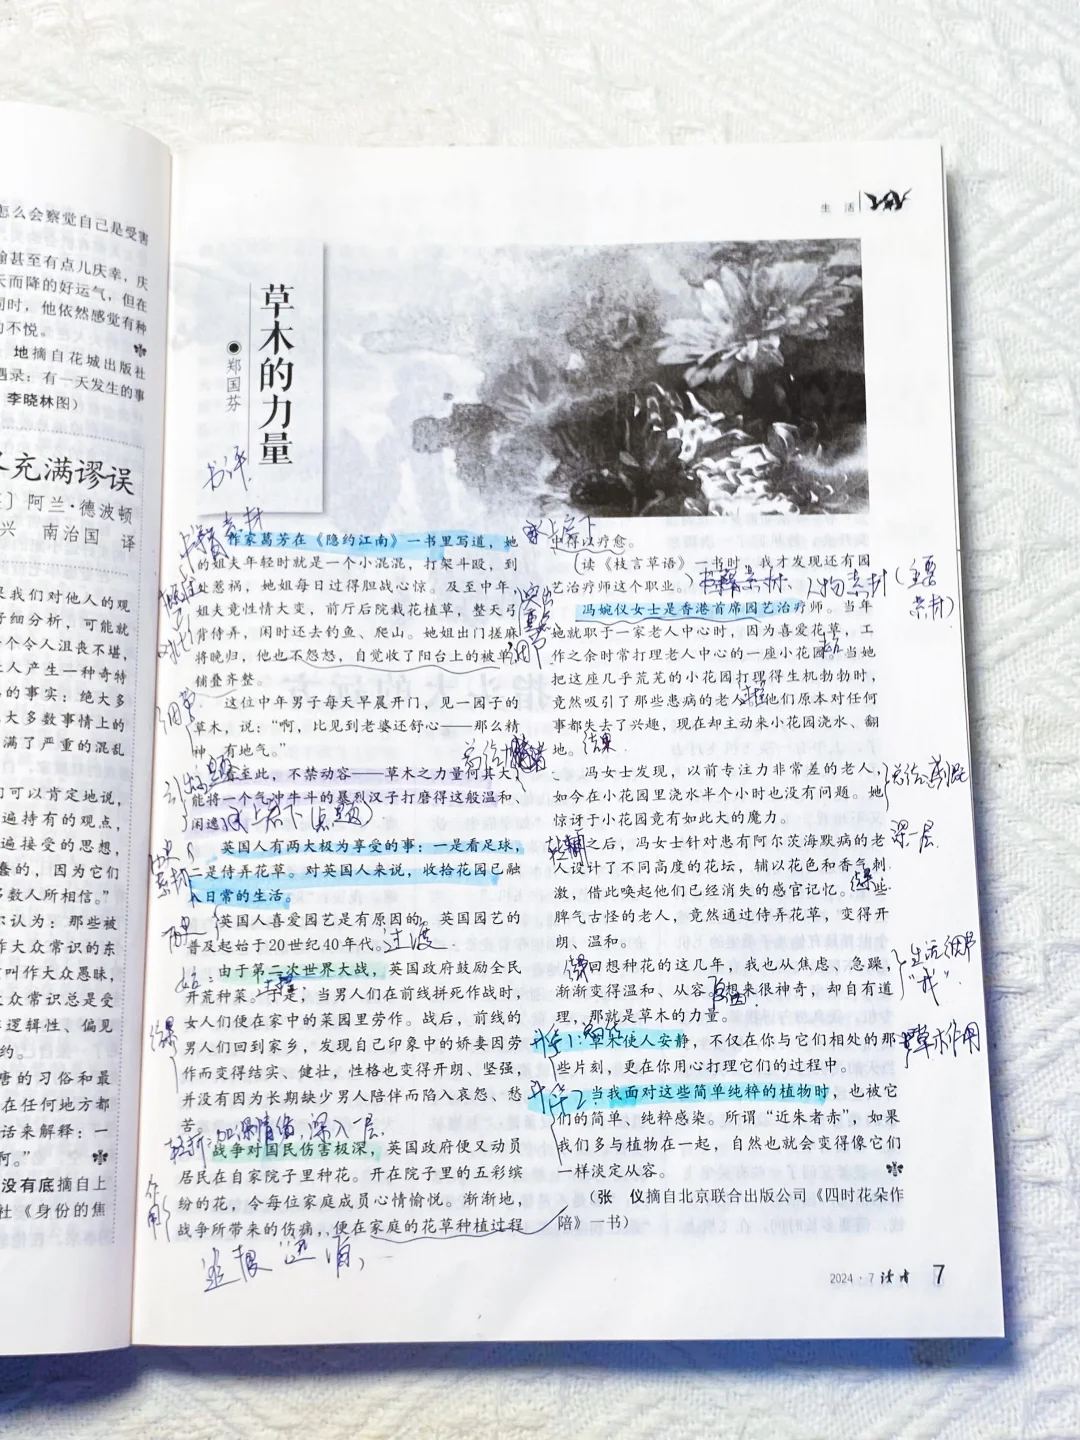 怎么会察觉自己是受害
甚至有点儿庆幸,庆
而降的好运气,但在
同时,他依然感觉有种
的不悦。
地摘自花城出版社
遇录:有一天发生的事
李晓林图)
充满谬误
阿兰·德波顿
兴 南治国 译
我们对他人的观
仔细分析,可能就
个令人沮丧不堪,
人产生一种奇特
的事实:绝大多
大多数事情上的
满了严重的混乱
们可以肯定地说,
遍持有的观点,
遍接受的思想,
,因为它们
多数人所相信。”
尔认为:那些被
作大众常识的东
叫作大众愚昧,
大众常识总是受
逻辑性、偏见
约。
唐的习俗和最
在任何地方都
话来解释:一
阿。”
没有底摘自上
社《身份的焦
生活
草木的力量
●郑国芬
书评
作家葛芳在《隐约江南》一书里写道,她
的姐夫年轻时就是一个小混混,打架斗殴,到
处惹祸,她姐每日过得胆战心惊。及至中年,
姐夫竟性情大变,前厅后院栽花植草,整天弓
背侍弄,闲时还去钓鱼、爬山。她姐出门搓麻
将晚归,他也不怨怒,自觉收了阳台上的被单,
铺叠齐整。
这位中年男子每天早晨开门,见一园子的
草木,说:“啊,比见到老婆还舒心——那么精
神、有地气。”
看至此,不禁动容——草木之力量何其大,
能将一个气冲牛斗的暴烈汉子打磨得这般温和、
闲逸。
承上启下(点题)
英国人有两大极为享受的事:一是看足球,
二是侍弄花草。对英国人来说,收拾花园已融
入日常的生活。
英国人喜爱园艺是有原因的。英国园艺的
普及起始于20世纪40年代。
过渡
由于第二次世界大战,英国政府鼓励全民
开荒种菜。于是,当男人们在前线拼死作战时,
女人们便在家中的菜园里劳作。战后,前线的
男人们回到家乡,发现自己印象中的娇妻因劳
作而变得结实、健壮,性格也变得开朗、坚强,
并没有因为长期缺少男人陪伴而陷入哀怨、愁
苦。
结果
深入一层
战争对国民伤害极深,英国政府便又动员
居民在自家院子里种花。开在院子里的五彩缤
纷的花,令每位家庭成员心情愉悦。渐渐地,
战争所带来的伤痛,便在家庭的花草种植过程
作用
承上启下
中得以疗愈。
读《枝言草语》一书时,我才发现还有园
艺治疗师这个职业。
书籍素材
人物素材(主要
素材)
冯婉仪女士是香港首席园艺治疗师。当年
她就职于一家老人中心时,因为喜爱花草,工
作之余时常打理老人中心的一座小花园。当她
把这座几乎荒芜的小花园打理得生机勃勃时,
竟然吸引了那些患病的老人。他们原本对任何
事都失去了兴趣,现在却主动来小花园浇水、翻
地。
结果
冯女士发现,以前专注力非常差的老人,
如今在小花园里浇水半个小时也没有问题。她
惊讶于小花园竟有如此大的魔力。
深一层
之后,冯女士针对患有阿尔茨海默病的老
人设计了不同高度的花坛,辅以花色和香气刺
激,借此唤起他们已经消失的感官记忆。一些
脾气古怪的老人,竟然通过侍弄花草,变得开
朗、温和。
生活细节
“我”
回想种花的这几年,我也从焦虑、急躁,
渐渐变得温和、从容。想来很神奇,却自有道
理,那就是草木的力量。
升华1:
草木使人安静,不仅在你与它们相处的那
些片刻,更在你用心打理它们的过程中。
草木作用
升华2:
当我面对这些简单纯粹的植物时,也被它
们的简单、纯粹感染。所谓“近朱者赤”,如果
我们多与植物在一起,自然也就会变得像它们
一样淡定从容。
(张 仪摘自北京联合出版公司《四时花朵作
陪》一书)
2024·7 读者 7